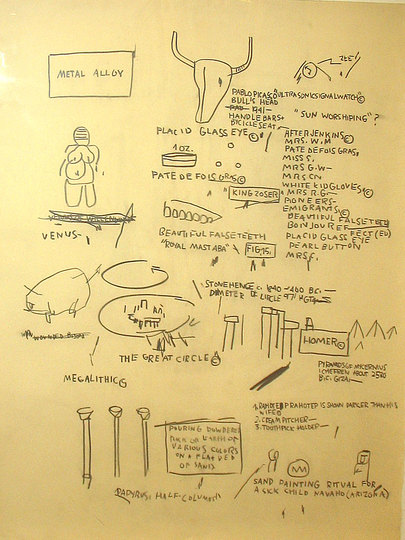 METAL ALLOY
ZEE!
PABLO PICASO "ULTRASONIC SIGNAL WATCH" ©
BULL'S HEAD
1941-
HANDLEBARS+
BICICLE SEAT-
"SUN WORSHIPING"?
PLACID GLASS EYE ©
1 OZ.
PATE DE FOIS GRAS ©
AFTER JENKINS ©
MRS. W.M
PATE DE FOIS GRAS,
MISS S.
MRS G.W-
MRS CN
WHITE KID GLOVES ©
MRS R.G-
PIONEERS-
EMIGRANTS ©
BEAUTIFUL FALSETEETH
BONJOUR EFFECT (EU)
PLACID GLASS EYE
PEARL BUTTON
MRS F.
KING ZOSER
VENUS-
BEAUTIFUL FALSETEETH
"ROYAL MASTABA"
FIG. 15.
STONEHENGE C. 1840-1460 BC.-
DIAMETER OF CIRCLE 97'
THE GREAT CIRCLE
HOMER ©
MEGALITHIC
PYRAMIDS OF MICERNIUS
CHEFREN ABOUT 2530
B.C. GIZA-
1. RAHOTEP IS SHOWN DARKER THAN HIS
WIFE
2. CREAM PITCHER-
3. TOOTHPICK HOLDER-
POURING POWDERED
ROCK OR EARTH OF
VARIOUS COLORS
ON A FLAT BED
OF SAND
PAPYRUS HALF-COLUMNS
SAND PAINTING RITUAL FOR
A SICK CHILD NAVAHO (ARIZONA)